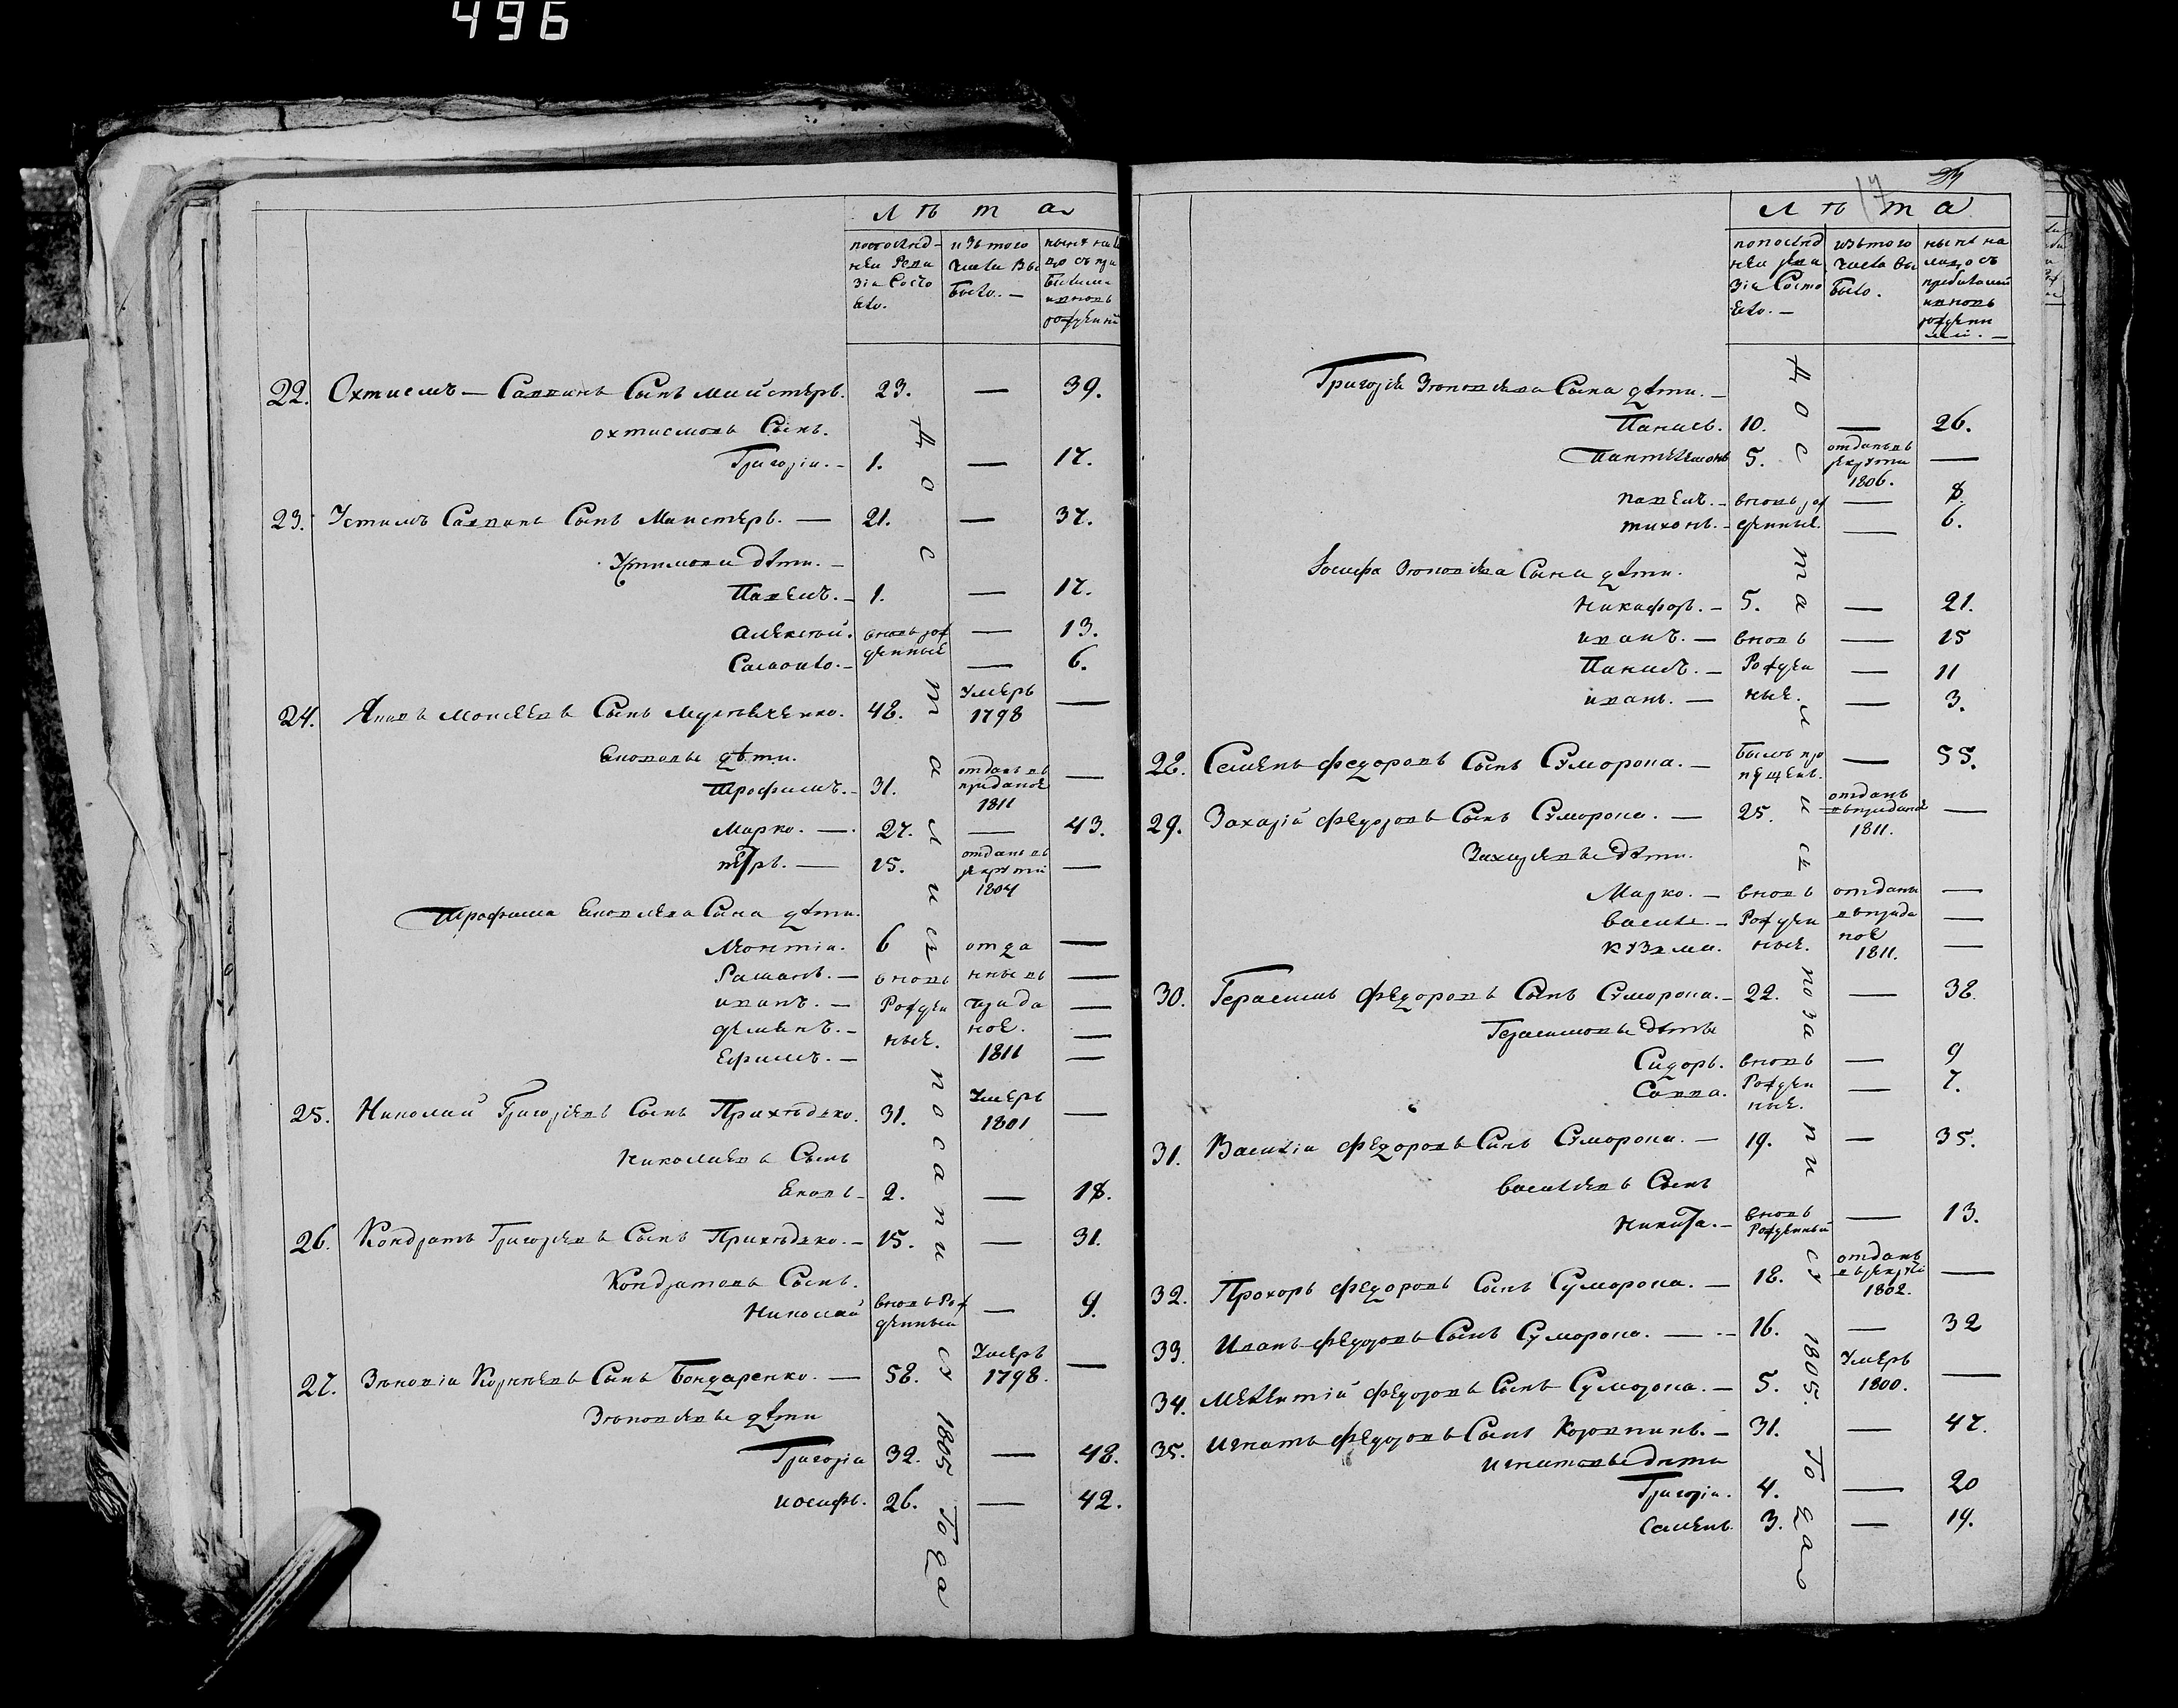 496
Л ѣ т а
по послѣд-
ней реви
зіи Состо
ало.
изъ того
числа вы
было. —
нынѣ на ли
цо съ при
былыми
и вновь
рожденны
22. Охтисмъ — Саввинъ Сынъ Майстеръ. 23. — 39.
Охтисмовъ Сынъ.
Григорій. — 1. — 17.
23. Устимъ Саввинъ Сынъ Майстеръ. — 21. — 37.
Устимови дѣти. —
Павелъ. — 1. — 17.
Алексѣй. вновь рож — 13.
Самойло. — денные — 6.
24. Яковъ Моисеевъ Сынъ 48. Умеръ 1798 —
Яковови дѣти.
Трофимъ. — 31. отданъ въ приданое 1811 —
Марко. — 27. — 43.
Петръ. — 15. отданъ въ рекруты 1804 —
Трофима Яковлева Сына дѣти.
Леонтій. 6 отда —
Романъ. — вновь нные въ —
Иванъ. — Рожден прида —
Демянъ. — ные. ное. —
Ефимъ. — 1811 —
25. Николай Григорьевъ Сынъ Прихидько. 31. Умеръ 1801 —
Николаевъ Сынъ
Яковъ — 2. — 18.
26. Кондратъ Григорьевъ Сынъ Прихидько. — 15. — 31.
Кондратовъ Сынъ.
Николай вновь Рож денный — 9.
27. Зѣновій Корнѣевъ Сынъ Бондаренко. — 58. Умеръ 1798. —
Зѣновіевы дѣти
Григорій 32. — 48.
Иосифъ. 26. — 42.
Достались по записи 1805 Года
17
Л ѣ т а
по послѣд
ней реви
зіи Состо
ало. —
изъ того
числа вы
было.
нынѣ на
лицо съ
прибылыми
и вновь
рожденны
ми. —
Григорія Зѣновіева Сына дѣти. —
Панасъ. 10. — 26.
Пантелимонъ 5. отданъ въ рекруты 1806. —
Павелъ. — вновь рож — 8.
Тихонъ. — денные. — 6.
Іосифа Зѣновіева Сына дѣти.
Никифоръ. — 5. — 21.
Иванъ. — вновь — 15
Панасъ. — Рожден — 11
Иванъ. — ные. — 3.
28. Семенъ Федоровъ Сынъ Суморока. — былъ про пущенъ. — 55.
29. Захарій Федоровъ Сынъ Суморока. — 25. отданъ въ приданое 1811. —
Захарьевы дѣти.
Марко. — вновь отданы —
Василь. — Рожден въ прида —
Кузма. ные. ное 1811. —
30. Герасимъ Федоровъ Сынъ Суморока. — 22. — 38.
Герасимовы дѣти
Сидоръ. вновь — 9
Савва. Рожден ные. — 7.
31. Василій Федоровъ Сынъ Суморока. — 19. — 35.
Васильевъ Сынъ
Никита. — вновь Рожденный — 13.
32. Прохоръ Федоровъ Сынъ Суморока. — 18. отданъ въ рекруты 1802. —
33. Иванъ Федоровъ Сынъ Суморока. — 16. — 32
34. Мелентій Федоровъ Сынъ Суморока. — 5. Умеръ 1800. —
35. Игнатъ Федоровъ Сынъ — 31. — 47.
Игнатовы дѣти
Григорій. 4. — 20
Семенъ. 3. — 19.
Достались по записи 1805. Года